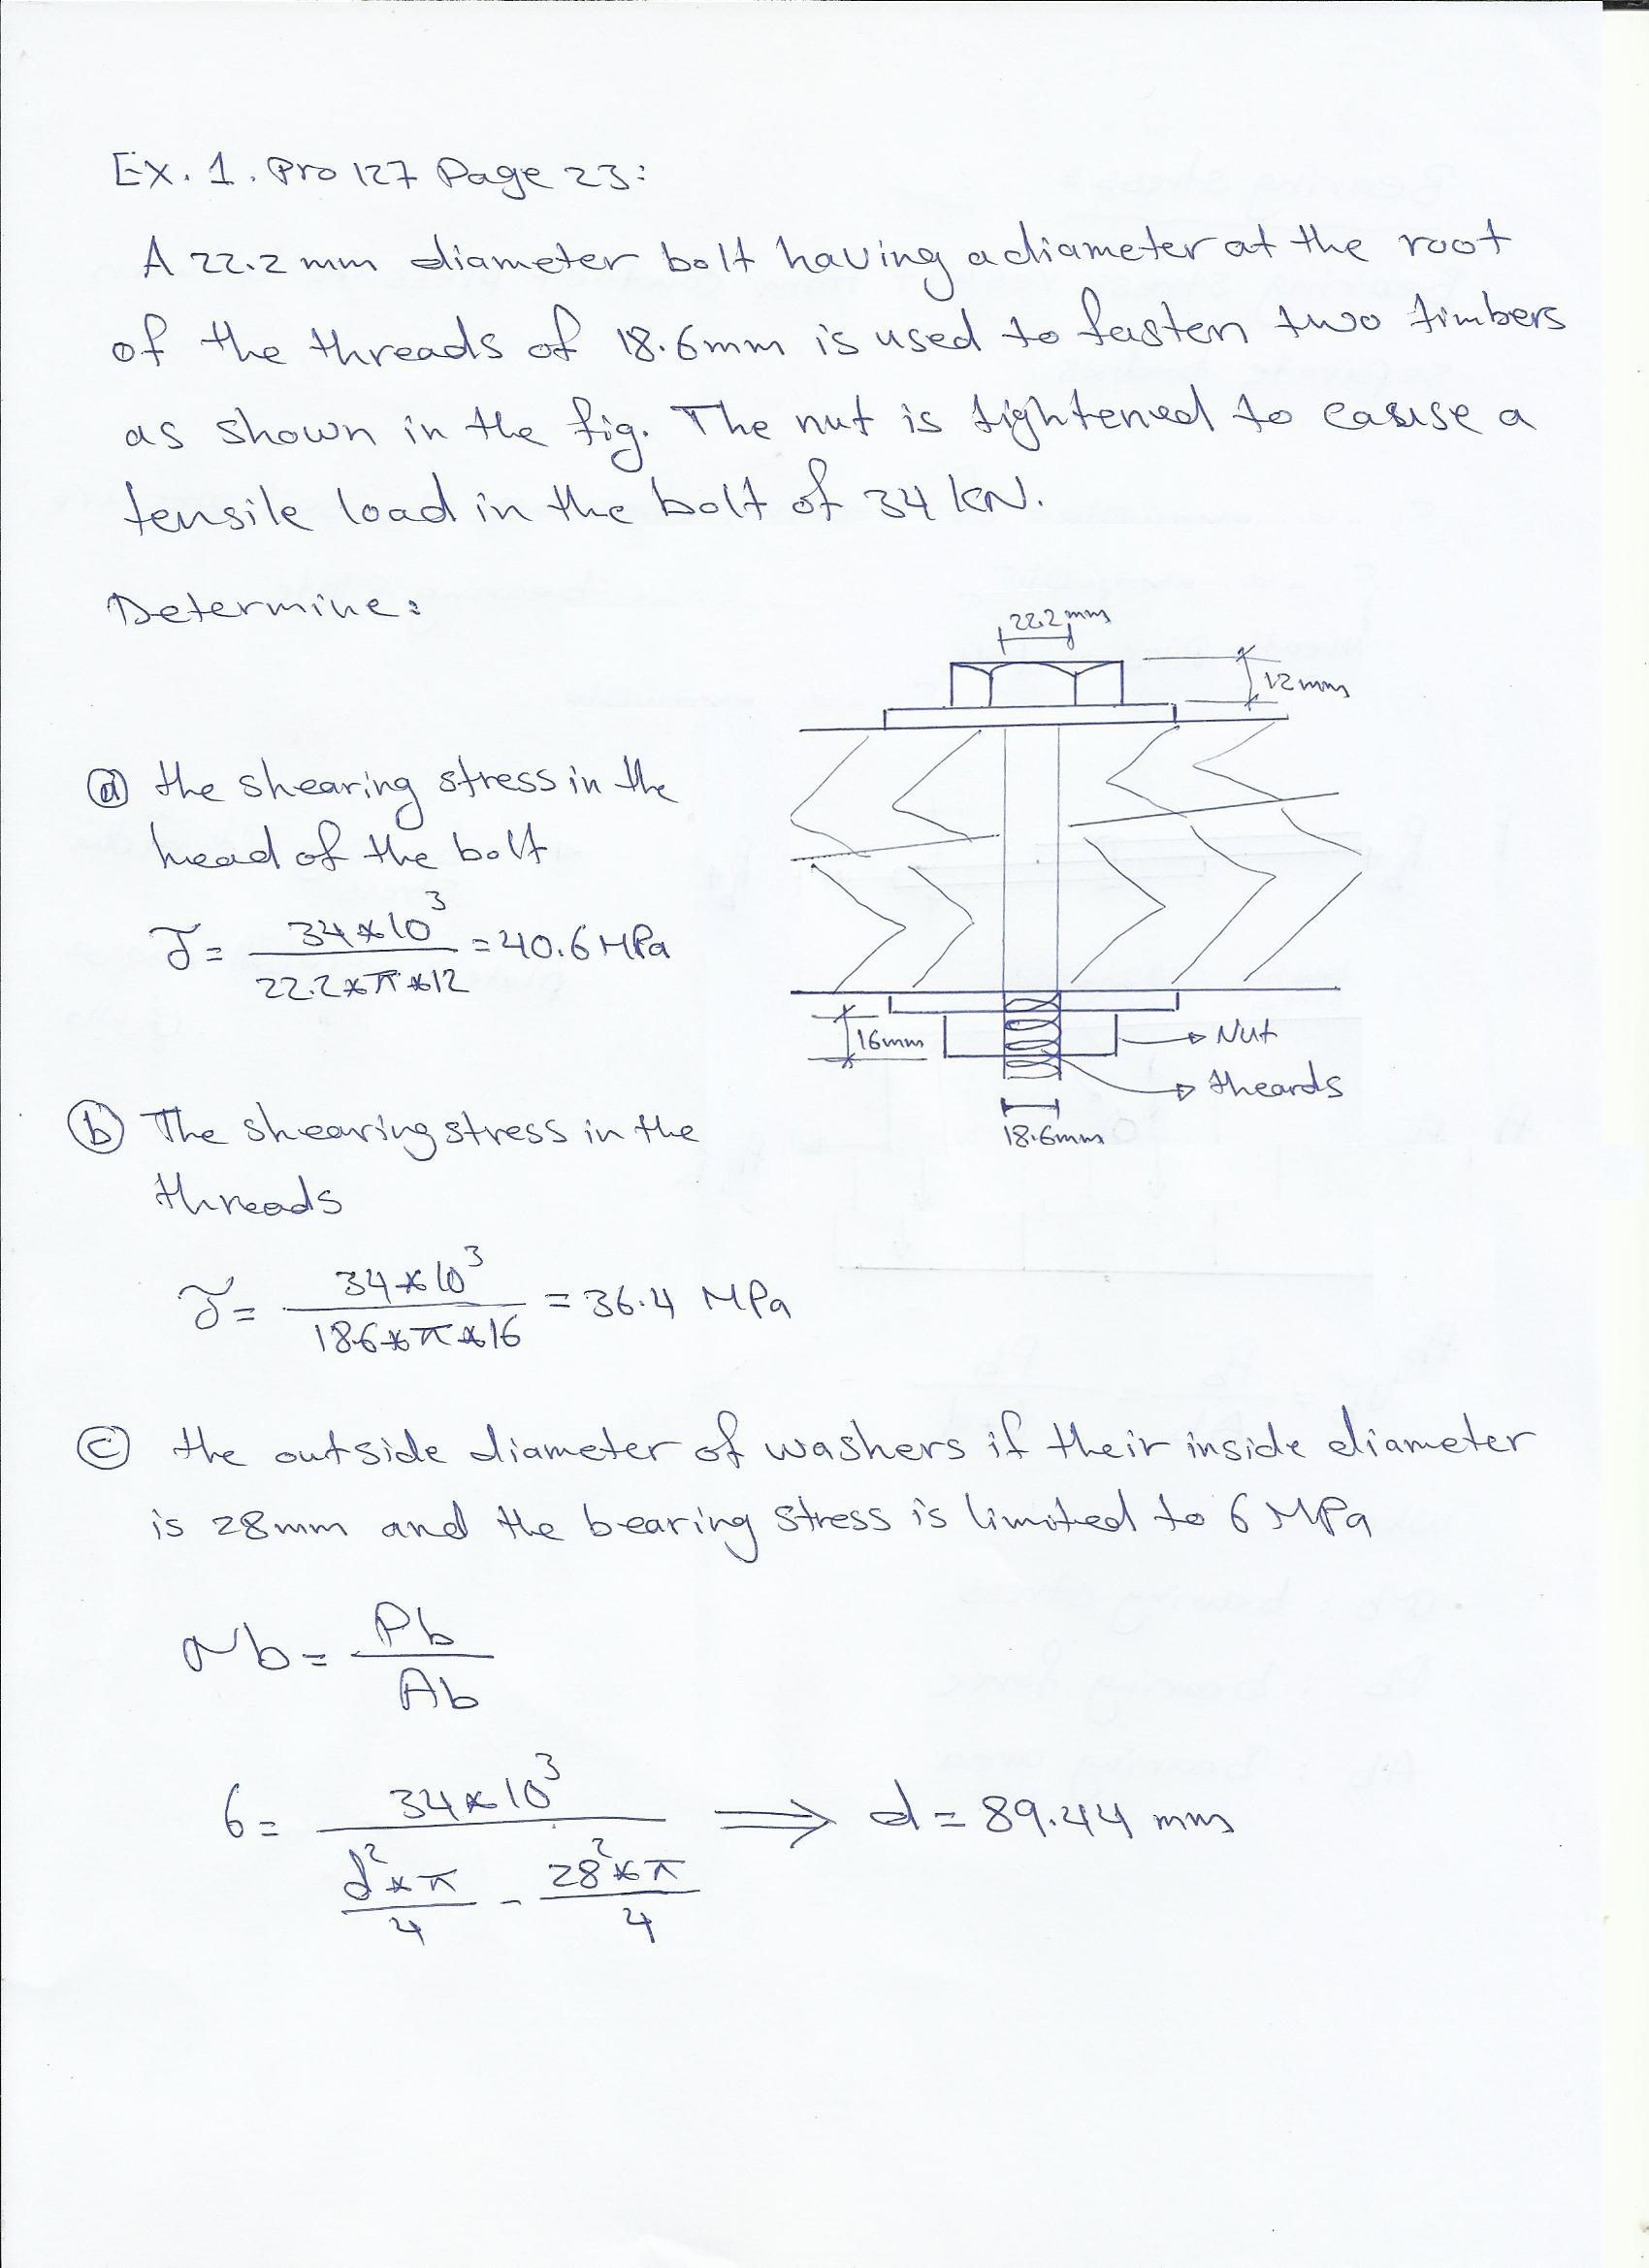 Ex. 1. Pro 127 Page 23:
A 22.2 mm diameter bolt having a diameter at the root
of the threads of 18.6mm is used to fasten two timbers
as shown in the fig. The nut is tightened to casuse a
tensile load in the bolt of 34 kN.
Determine:
22.2mm
12mm
ⓐ the shearing stress in the
head of the bolt
τ = 34*10³ / 22.2*π*12 = 40.6 MPa
16mm
Nut
theards
18.6mm
ⓑ The shearing stress in the
threads
τ = 34*10³ / 18.6*π*16 = 36.4 MPa
ⓒ the outside diameter of washers if their inside diameter
is 28mm and the bearing stress is limited to 6 MPa
σb = Pb / Ab
6 = 34*10³ / (d²*π / 4 - 28²*π / 4) ⟹ d = 89.44 mm